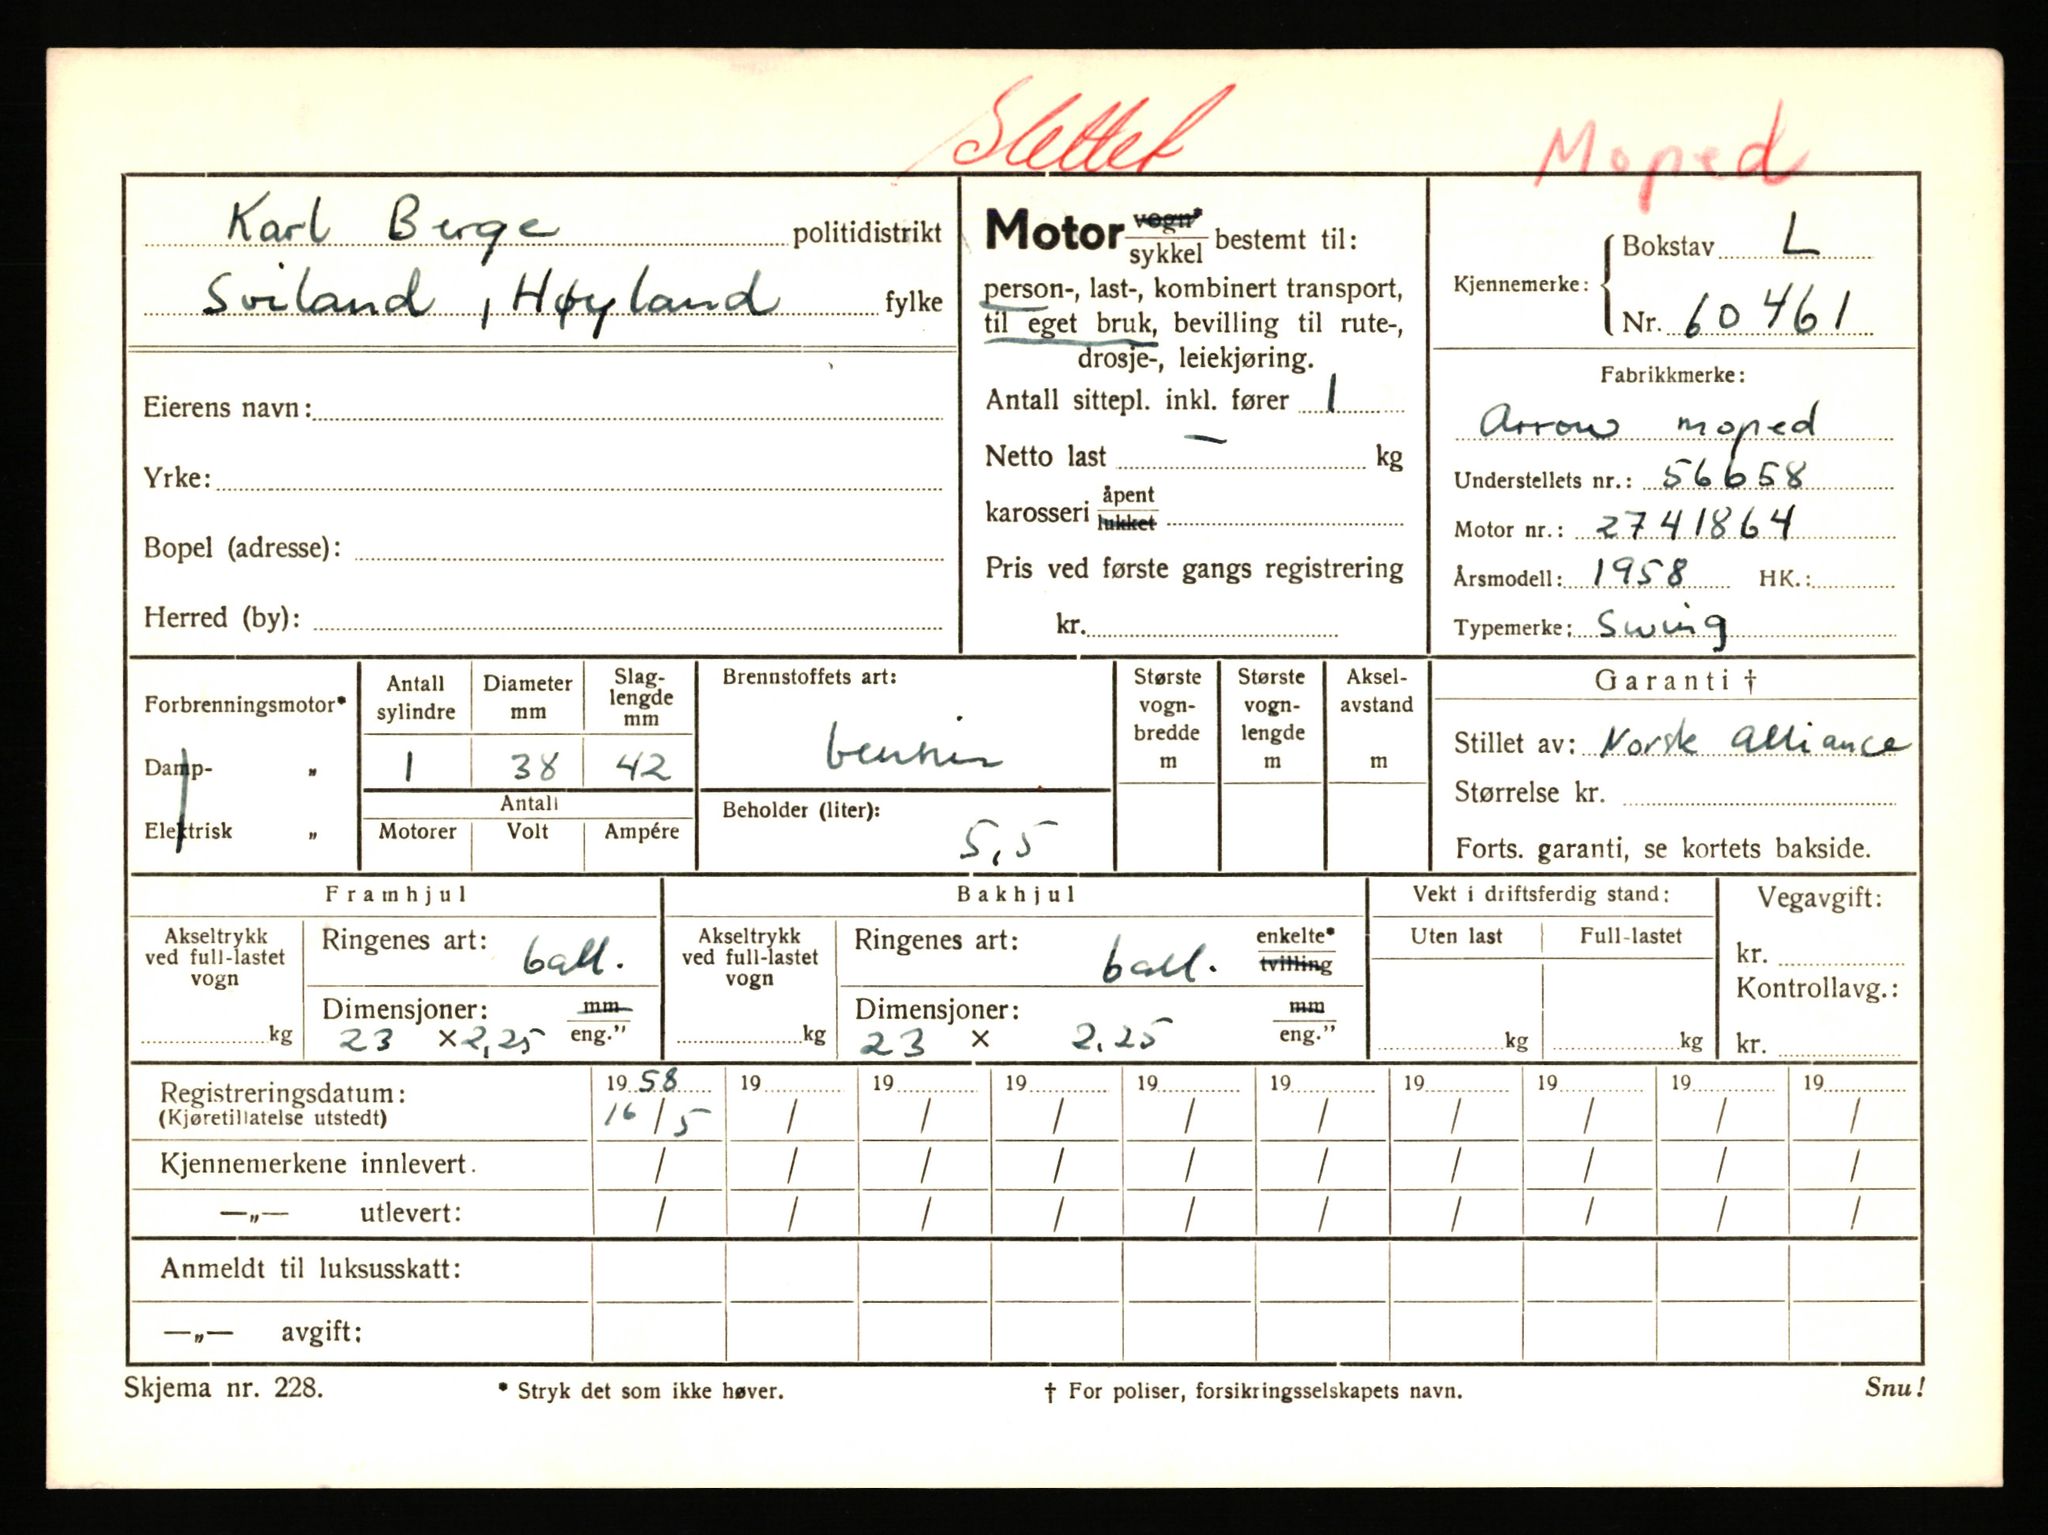 Slettet
Moped
Karl Berge politidistrikt
Sviland, Høyland fylke
Eierens navn:
Yrke:
Bopel (adresse):
Herred (by):
Motor vogn* sykkel bestemt til:
person-, last-, kombinert transport,
til eget bruk, bevilling til rute-,
drosje-, leiekjøring.
Antall sittepl. inkl. fører 1
Netto last — kg
karosseri åpent lukket
Pris ved første gangs registrering
kr.
Kjennemerke: Bokstav L
Nr. 60461
Fabrikkmerke:
Arrow moped
Understellets nr.: 56658
Motor nr.: 2741864
Årsmodell: 1958 HK.:
Typemerke: Swing
Forbrenningsmotor*
Damp- „
Elektrisk „
Antall sylindre
1
Diameter mm
38
Slag-lengde mm
42
Antall
Motorer Volt Ampére
Brennstoffets art:
bensin
Beholder (liter):
5,5
Største vogn-bredde m
Største vogn-lengde m
Aksel-avstand m
Garanti †
Stillet av: Norsk Alliance
Størrelse kr.
Forts. garanti, se kortets bakside.
Framhjul
Akseltrykk ved full-lastet vogn
kg
Ringenes art: ball.
Dimensjoner: mm
23 × 2,25 eng.”
Bakhjul
Akseltrykk ved full-lastet vogn
kg
Ringenes art: ball. enkelte* tvilling
Dimensjoner: mm
23 × 2.25 eng.”
Vekt i driftsferdig stand:
Uten last Full-lastet
kg kg
Vegavgift:
kr.
Kontrollavg.:
kr.
Registreringsdatum: 19 58 19 19 19 19 19 19 19 19 19
(Kjøretillatelse utstedt) 16 / 5 / / / / / / / / /
Kjennemerkene innlevert. / / / / / / / / / /
—„— utlevert: / / / / / / / / / /
Anmeldt til luksusskatt:
—„— avgift:
Skjema nr. 228. * Stryk det som ikke høver. † For poliser, forsikringsselskapets navn. Snu!